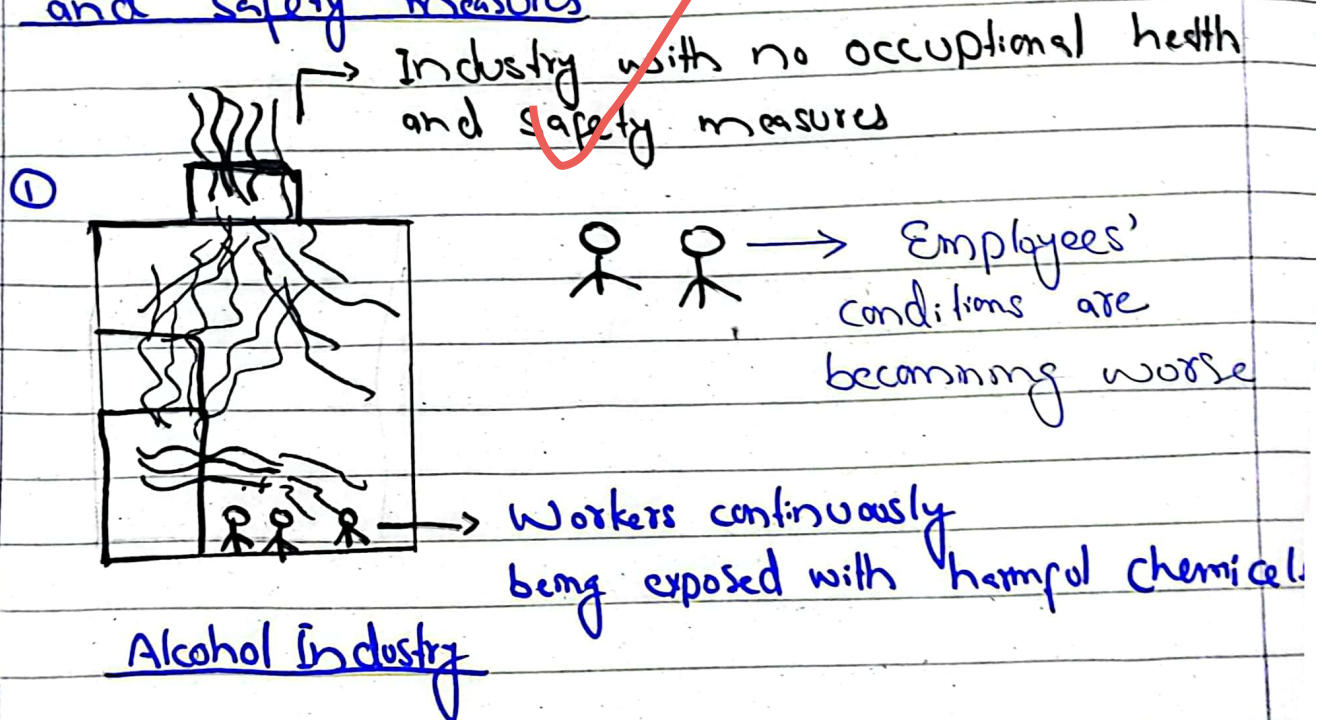 and safety measures
Industry with no occuptional health
and safety measures
①
Employees'
conditions are
becomming worse
Workers continuously
being exposed with harmful chemicals
Alcohol Industry